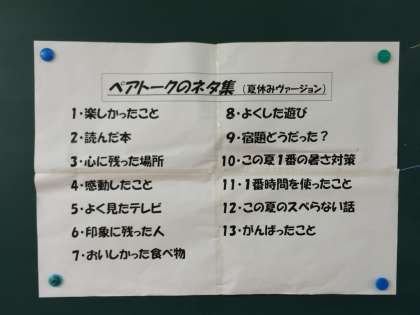 ペアトークのネタ集（夏休みヴァージョン）
1・楽しかったこと
2・読んだ本
3・心に残った場所
4・感動したこと
5・よく見たテレビ
6・印象に残った人
7・おいしかった食べ物
8・よくした遊び
9・宿題どうだった？
10・この夏1番の暑さ対策
11・1番時間を使ったこと
12・この夏のスベらない話
13・がんばったこと